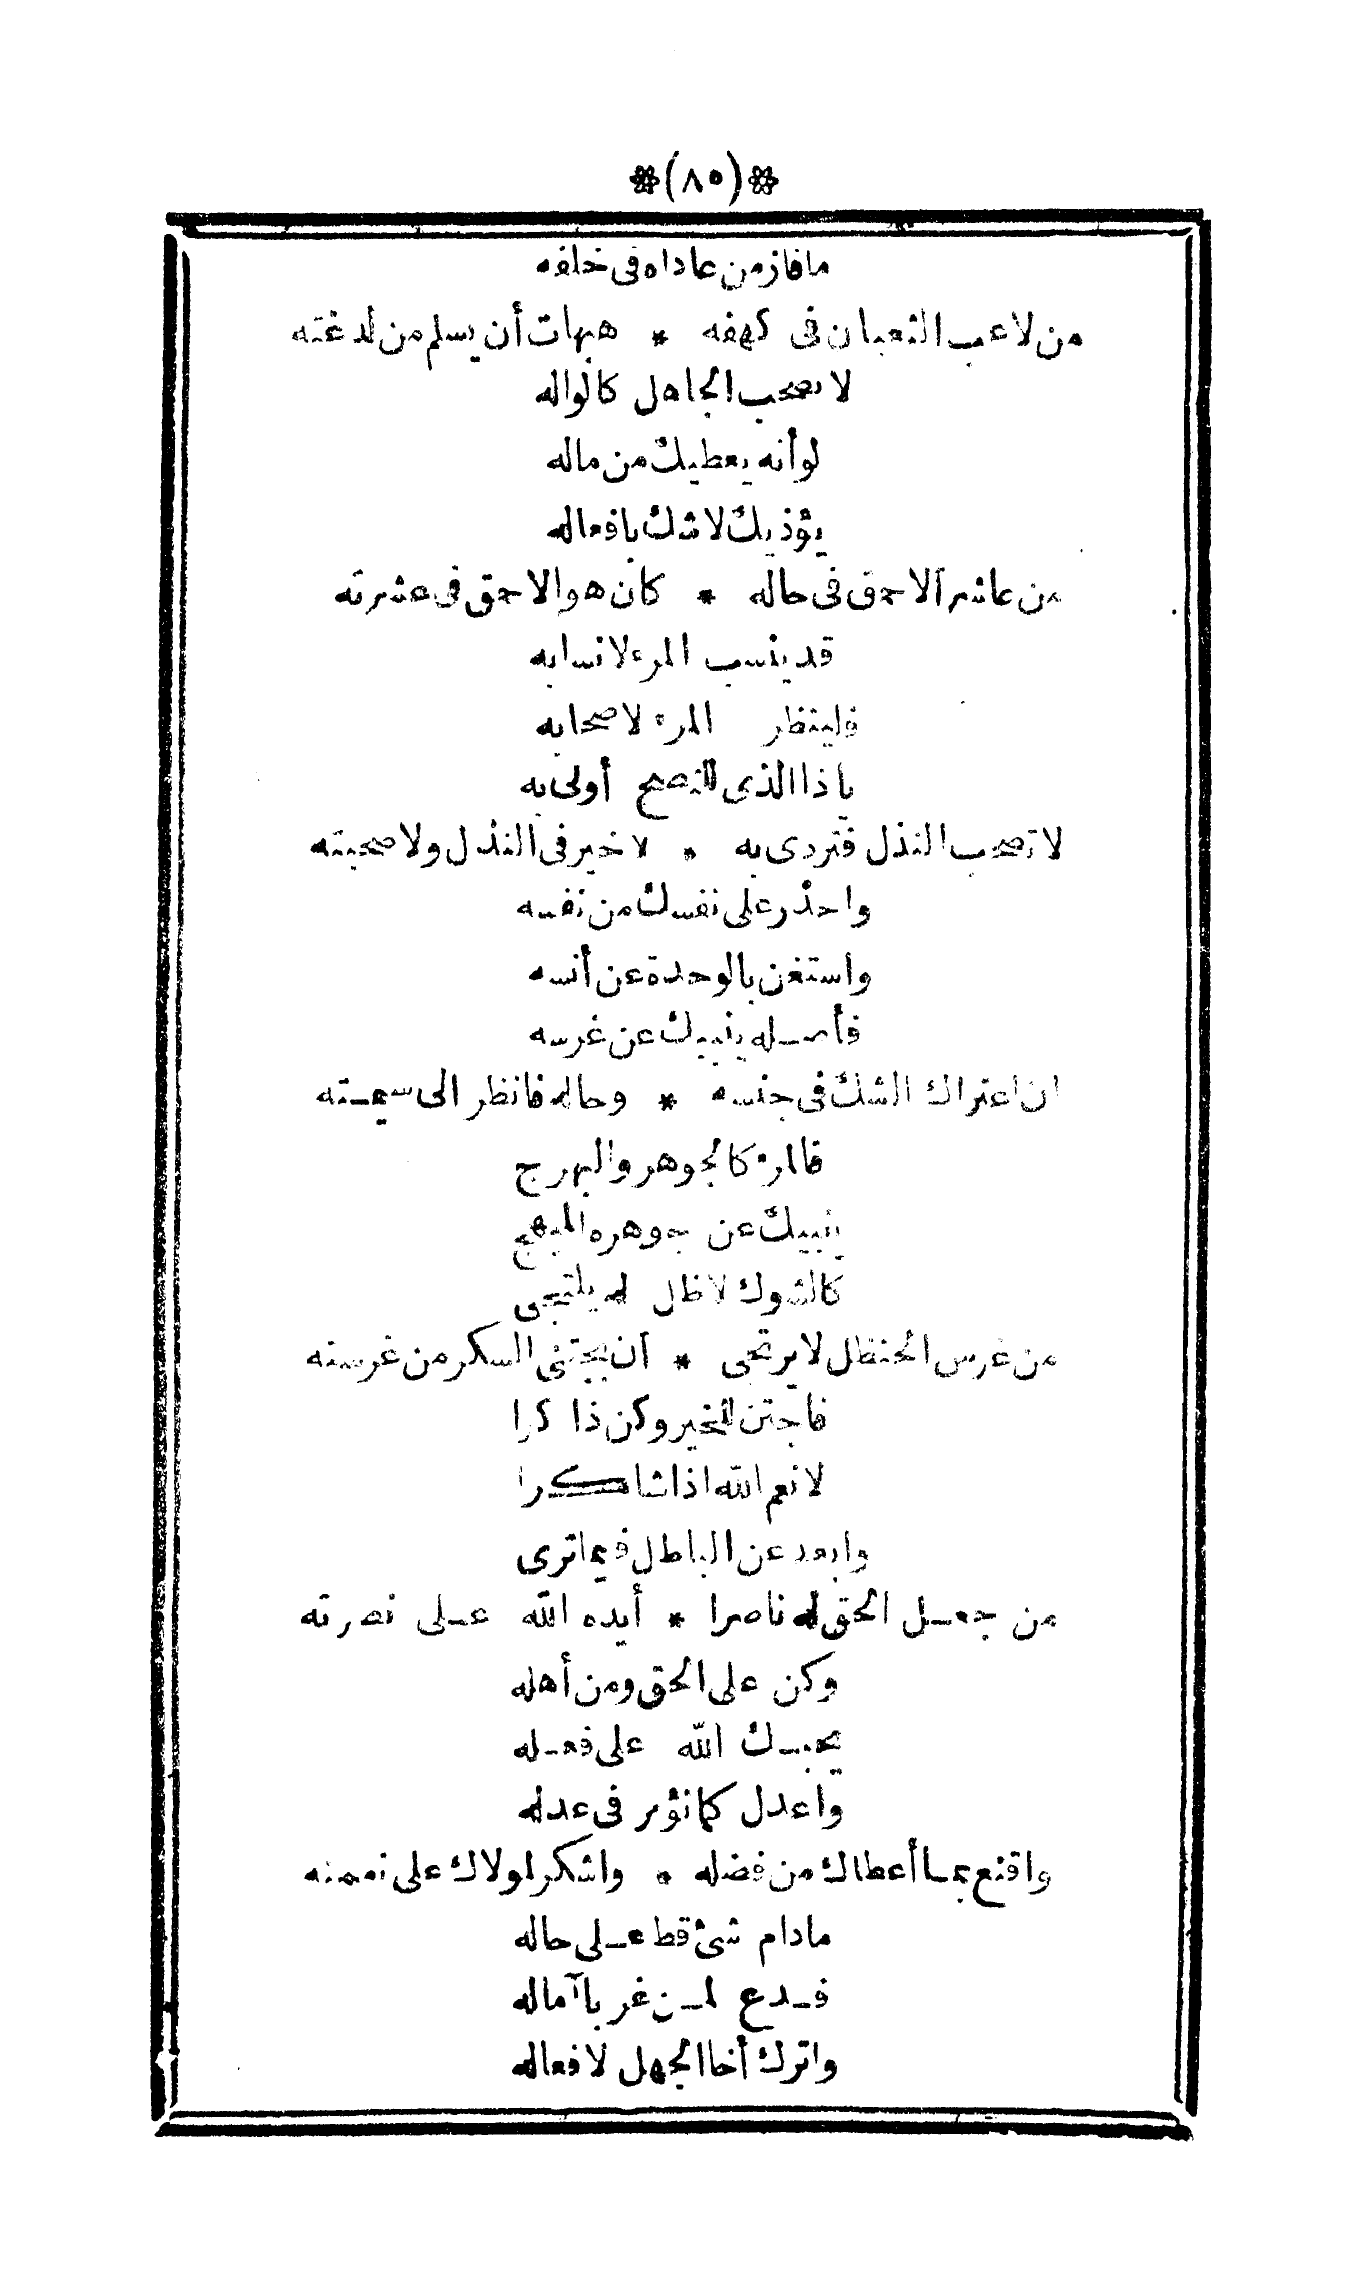 *(٨٥)*
مافاز من عاداه فى خلفه
من لاعب الثعبان فى كهفه * هيهات أن يسلم من لدغته
لا تصحب الجاهل كالواله
لو أنه يعطيك من ماله
يؤذيك لا شك بافعاله
من عاشر الاحمق فى حاله * كان هو الاحمق فى عشرته
قد ينسب المرء لانسابه
فلينظر المرء لاصحابه
ياذا الذى للنصح أولى به
لا تصحب النذل فتردى به * لا خير فى النذل ولا صحبته
واحذر على نفسك من نفسه
واستغن بالوحدة عن أنسه
فأصله ينبيك عن غرسه
ان اعتراك الشك فى جنسه * وحاله فانظر الى سيمته
فالمرء كالجوهر والبهرج
ينبيك عن جوهره المبهج
كالشوك لا ظل له يلتجى
من غرس الحنظل لا يرتجى * أن يجتنى السكر من غرسته
فاجتن للخير وكن ذاكرا
لانعم الله اذا شاكرا
وابعد عن الباطل فيما ترى
من جعل الحق له ناصرا * أيده الله على نصرته
وكن على الحق ومن أهله
يحبك الله على فعله
واعدل كما نؤمر فى عدله
واقنع بما أعطاك من فضله * واشكر لمولاك على نعمته
مادام شئ قط على حاله
فدع لمن غر بآماله
واترك أخا الجهل لافعاله